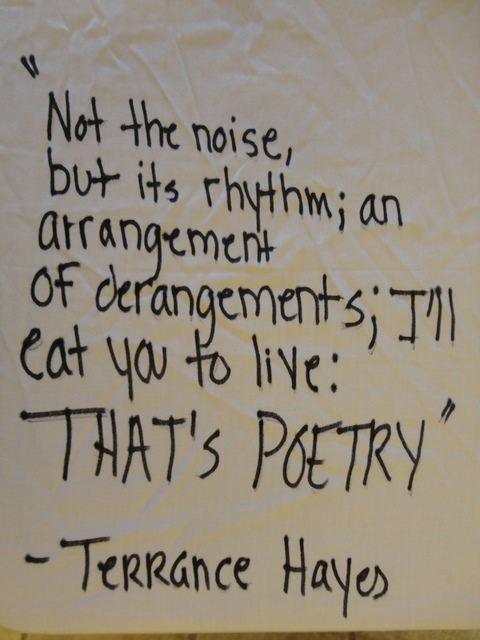 "
Not the noise,
but its rhythm; an
arrangement
of derangements; I'll
eat you to live:
THAT's POETRY"
- Terrance Hayes